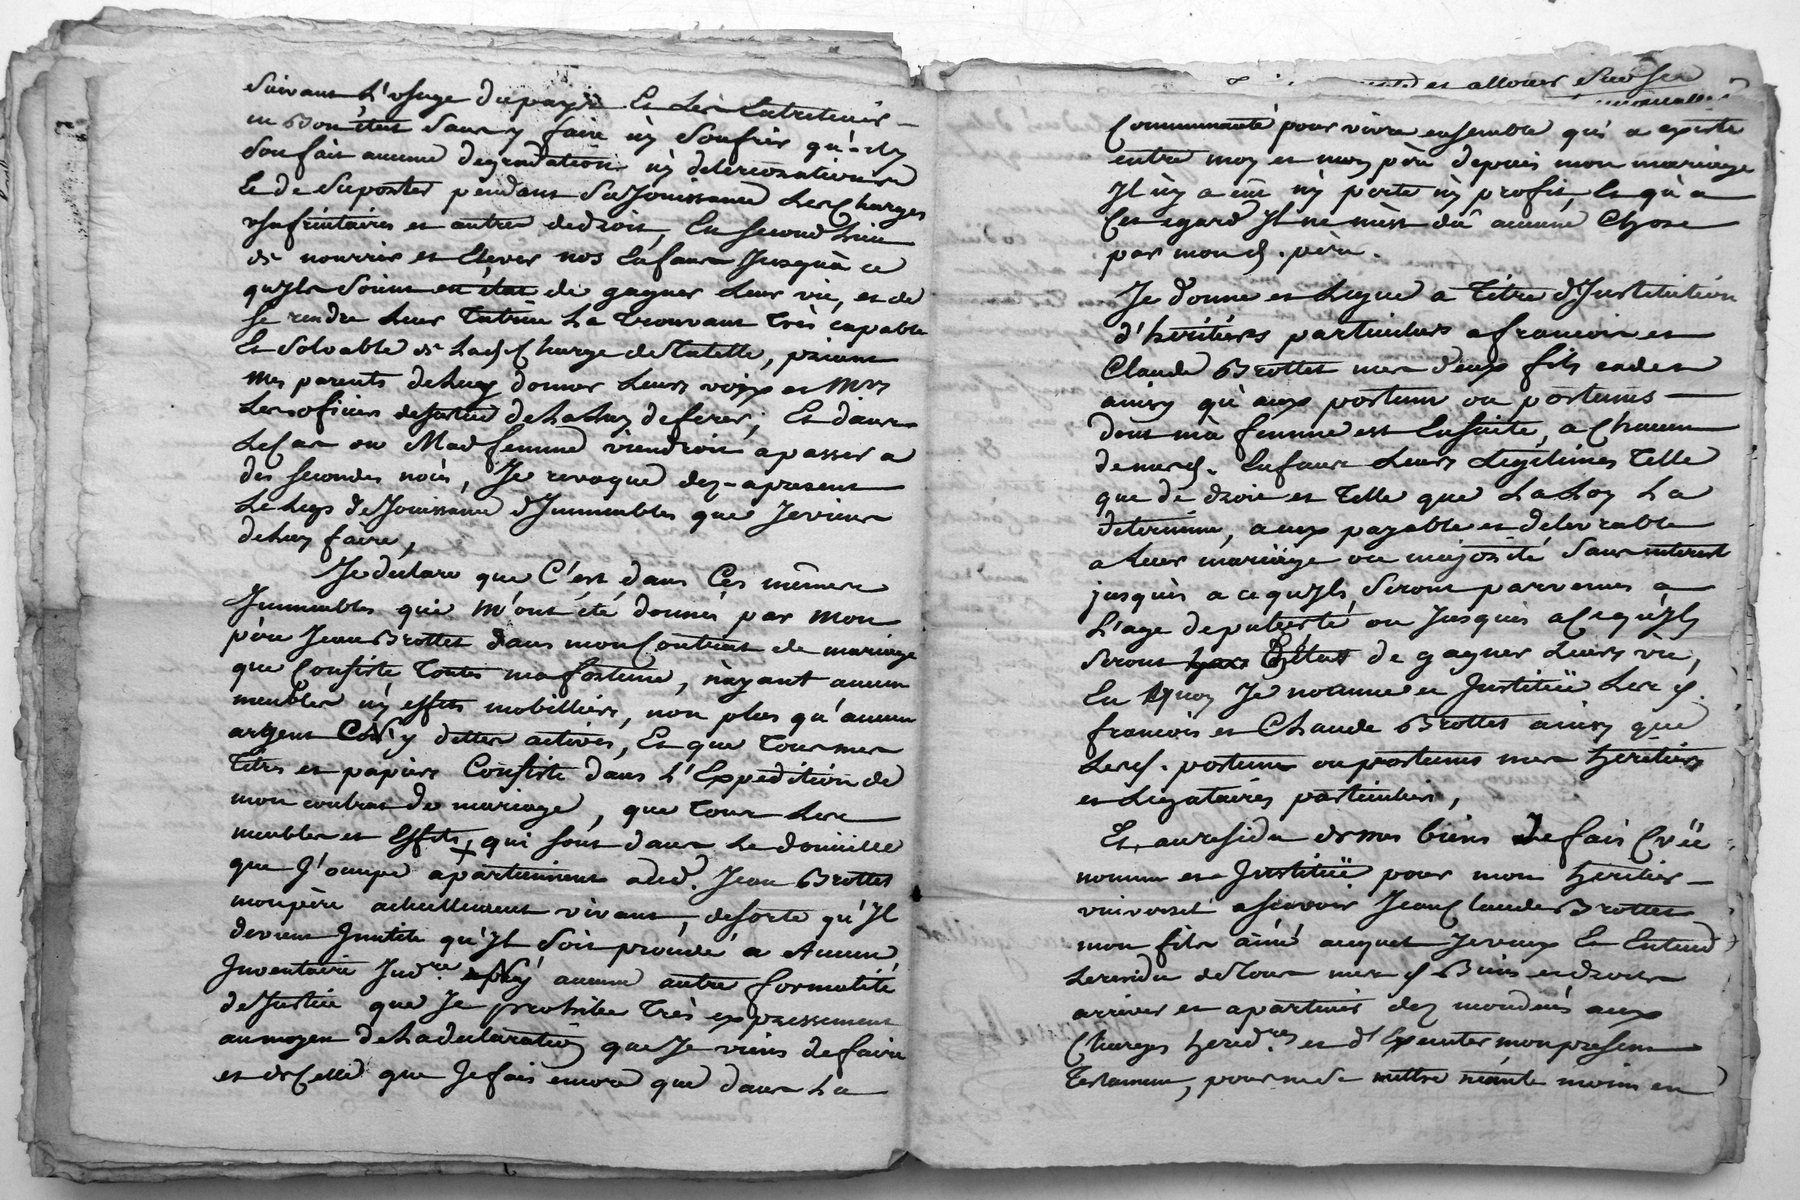 Suivant L'usage du pays Et Les Entretenir
en Bon état Sans y faire ny Soufrir qu'il y
Soit fait aucune degradation ny deterioration
Et de Suporter pendant Sa Jouissance Les Charges
usufruitaires et autres de droit, En Second Lieu
de nourrir et Elever nos Enfans Jusqu'à ce
qu'Ils Soient en état de gagner Leur vie, et de
Se rendre Leur Tutrice La Trouvant Très capable
Et Solvable de Lad. Charge de Tutelle, priant
mes parents de Luy donner Leurs voix et Mrs
Les oficiers de Justice de La Luy deferer; Et dans
Le Cas ou Mad. femme viendroit a passer a
des secondes noces, Je revoque dez-apresent
Le Legs de Jouissance d'Immeubles que Je viens
de Luy faire,
Je declare que C'est dans Ces mêmes
Immeubles qui m'ont été donnés par mon
père Jean Brottet dans mon Contrat de mariage
que Consiste Toute ma fortune, n'ayant aucun
meubles ny effets mobilliers, non plus qu'aucun
argent ny dettes actives, Et que Tous mes
Titres et papiers Consiste dans L'Expedition de
mon contrat de mariage, que Tous Les
meubles et Effets + qui sont dans Le domicille
que J'occupe apartiennent aud. Jean Brottet
mon père actuellement vivant, de sorte qu'Il
devient Inutile qu'Il Soit procédé a Aucun
Inventaire Judre ny aucune autre formalité
de Justice que Je prohibe Très expressement
au moyen de La declaration que Je viens de faire
et de Celle que Je fais encore que dans La
et allouer Sur Ses
Communauté pour vivre ensemble qui a existé
entre moy et mon père depuis mon mariage
Il n'y a eu ny perte ny profit, Et qu'a
Cet egard Il ne m'est dû aucune Chose
par mond. père.
Je donne et Legue a Titre d'Institution
d'heritiers particuliers a francois et
Claude Brottet mes deux fils cadets
ainsy qu'aux postume ou postumes
dont ma femme est Enceinte, a Chacun
de mesd. Enfans Leurs Legitimes Telle
que de droit et Telle que La Loy La
determine, a eux payable et delivrable
a Leur mariage ou majorité Sans interest
jusques a ce qu'Ils Seront parvenus a
L'age de puberté ou Jusques a Ce qu'Ils
Seront En Etat de gagner Leurs vie,
En quoy Je nomme et Institüe Lesd.
francois et Claude Brottet ainsy que
Lesd. postume ou postumes mes heritiers
et Legataires particuliers,
Et au residu de mes biens Je fais Crée
nomme et Institüe pour mon heritier
universel a scavoir Jean Claude Brottet
mon fils aîné auquel Je veux Et Entend
Le residu de Tous mes d. Biens et droits
arriver et apartenir dez mon décès aux
Charges heredres et d'Executer mon present
Testament, pour ne se mettre néant moins en